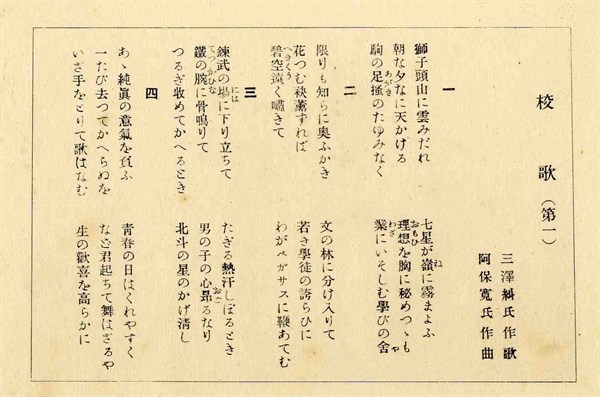 校歌(第一)
三澤糾氏作歌
阿保寬氏作曲
一
獅子頭山に雲みだれ
七星が嶺に霧まよふ
朝な夕なに天かける
理想を胸に秘めつゝも
駒の足掻のたゆみなく
業にいそしむ學びの舍
二
限りも知らに奥ふかき
文の林に分け入りて
花つむ袂薫ずれば
若き學徒の誇らひに
碧空遠く嘯きて
わがペガサスに鞭あてむ
三
錬武の場に下り立ちて
たぎる熱汗しぼるとき
鐵の腕に骨鳴りて
男の子の心昻るなり
つるぎ收めてかへるとき
北斗の星のかげ淸し
四
あゝ純眞の意氣を負ふ
靑春の日はくれやすく
一たび去つてかへらぬを
など君起ちて舞はざるや
いざ手をとりて歌はなむ
生の歡喜を高らかに